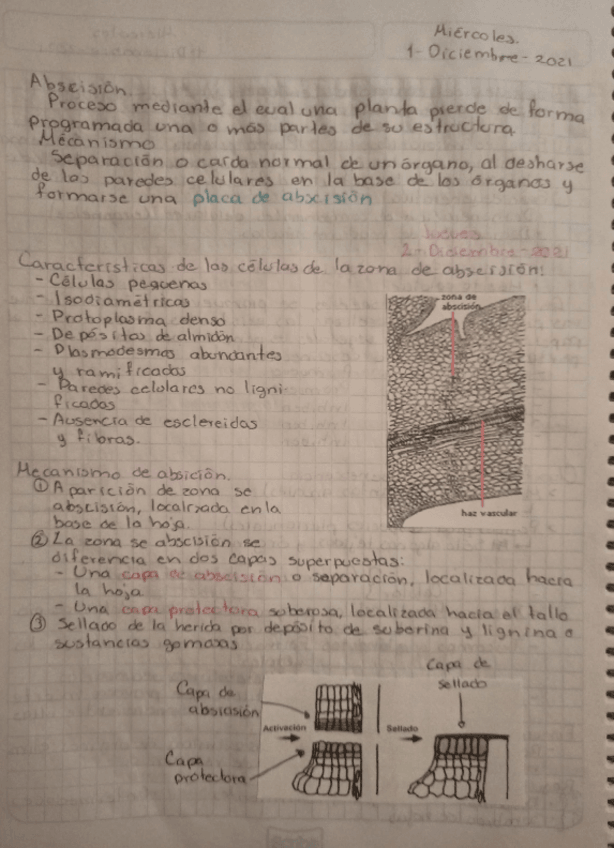 Miércoles.
1- Diciembre - 2021
Abscisión.
Proceso mediante el cual una planta pierde de forma
programada una o más partes de su estructura.
Mécanismo
Separación o caída normal de un órgano, al desharse
de las paredes celulares en la base de los órganos y
formarse una placa de abscisión
Jueves
2- Diciembre - 2021
Características de las células de la zona de abscisión:
- Células pequeñas
- Isodiamétricas
- Protoplasma denso
- Depósitos de almidón
- Plasmodesmos abundantes
y ramificados
- Paredes celulares no ligni
ficadas
- Ausencia de esclereidas
y fibras.
zona de
abscisión
haz vascular
Mecanismo de absición.
① Aparición de zona se
abscisión, localizada en la
base de la hoja.
② La zona se abscisión se
diferencia en dos capas superpuestas:
- Una capa de abscisión o separación, localizada hacia
la hoja
- Una capa protectora suberosa, localizada hacia el tallo
③ Sellado de la herida por depósito de suberina y lignina o
sustancias gomosas
Capa de
absiasión
Capa
protectora
Activación
Sellado
Capa de
sellado